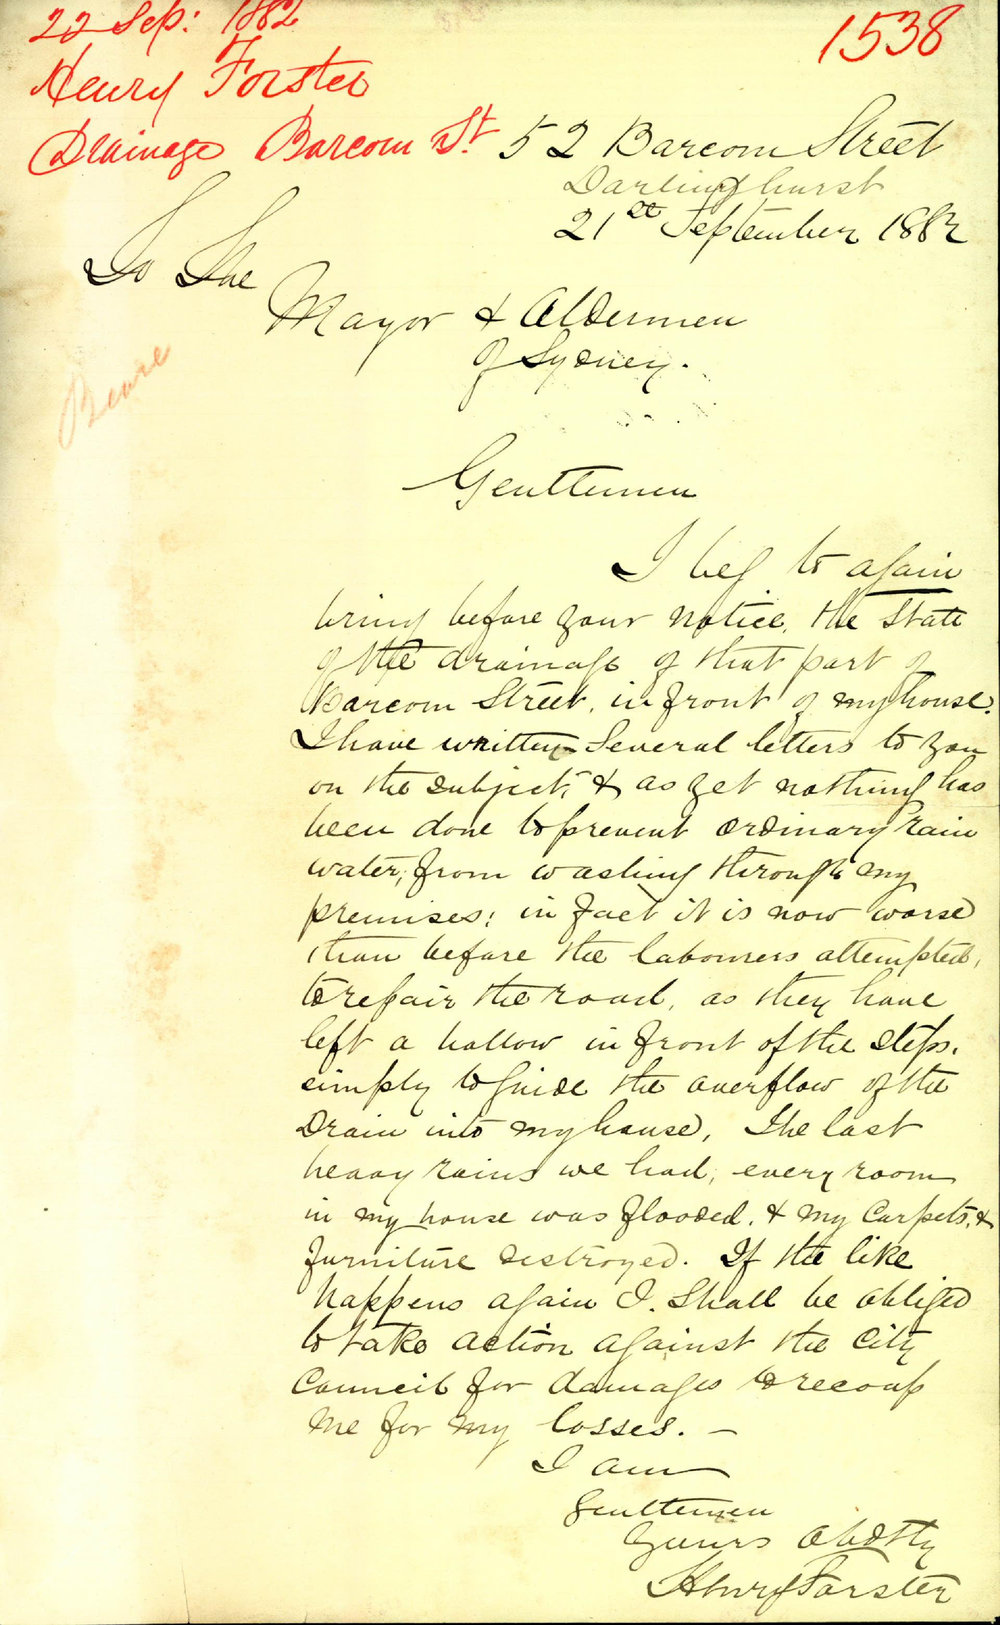 22 Sep: 1882
1538
Henry Forster
Drainage Barcom St
52 Barcom Street
Darlinghurst
21st September 1882
To The
Mayor & Aldermen
of Sydney.
Gentlemen
I beg to again
bring before your notice, the State
of the drainage of that part of
Barcom Street, in front of my house.
I have written Several letters to you
on the subject, & as yet nothing has
been done to prevent ordinary rain
water, from washing through my
premises; in fact it is now worse
than before the labourers attempted,
to repair the road, as they have
left a hollow in front of the steps,
simply to guide the overflow of the
Drain into my house, The last
heavy rains we had, every room
in my house was flooded, & my Carpets, &
furniture destroyed. If the like
happens again I. Shall be obliged
to take action against the City
Council for damages to recoup
me for my losses. –
I am
Gentlemen
Yours Obdtly
Henry Forster